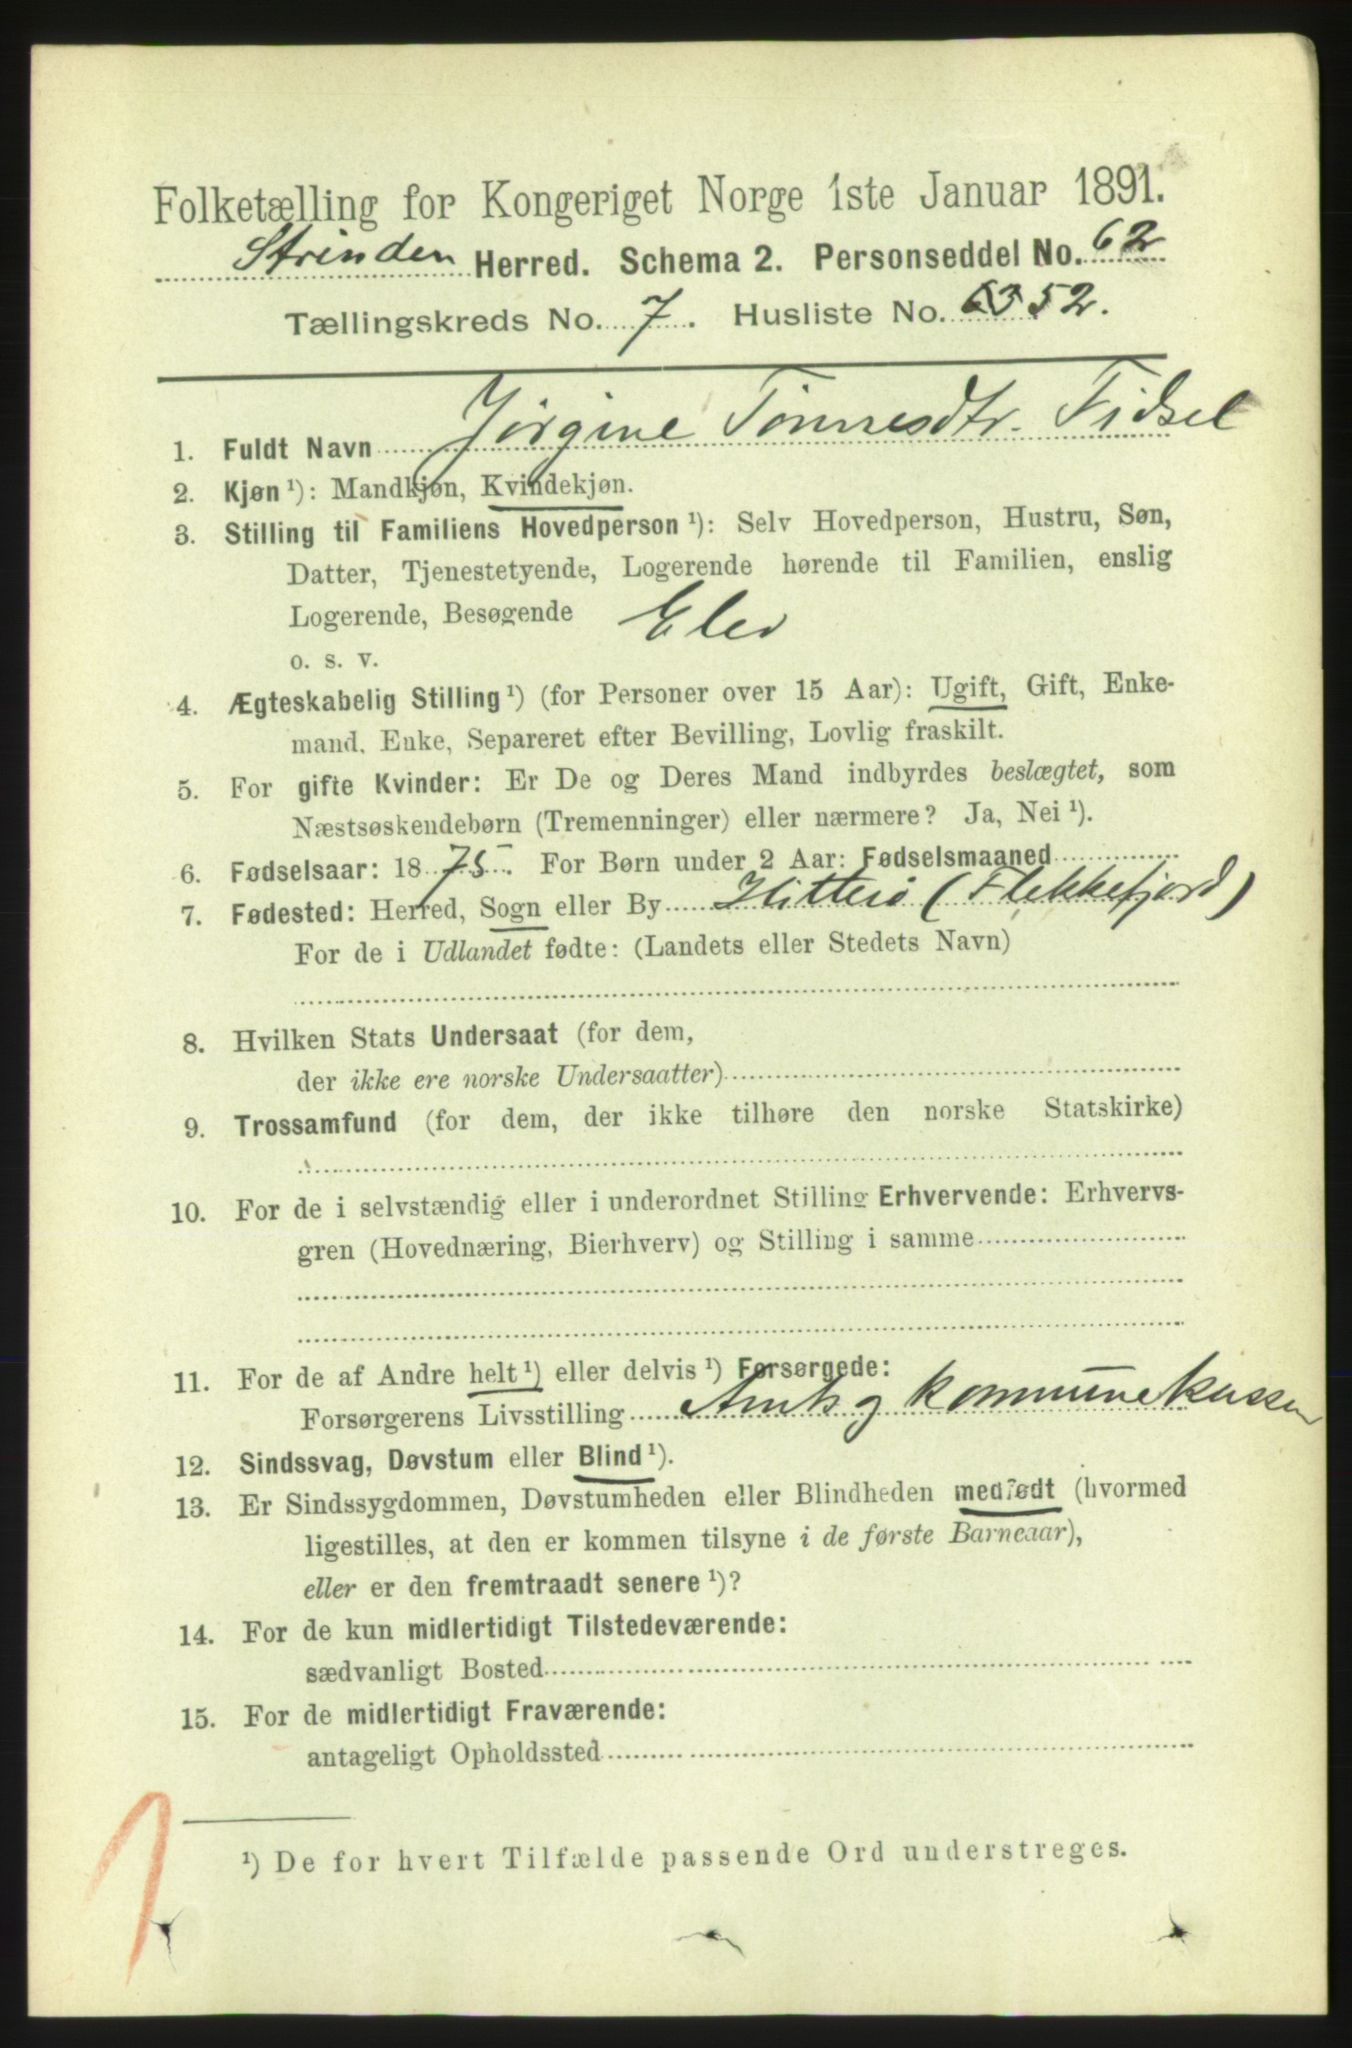 Folketælling for Kongeriget Norge 1ste Januar 1891.
Strinden Herred. Schema 2. Personseddel No. 62
Tællingskreds No. 7. Husliste No. 63 52.
1. Fuldt Navn Jørgine Tønnesdtr. Fidsel
2. Kjøn¹): Mandkjøn, Kvindekjøn.
3. Stilling til Familiens Hovedperson¹): Selv Hovedperson, Hustru, Søn,
Datter, Tjenestetyende, Logerende hørende til Familien, enslig
Logerende, Besøgende Elev
o. s. v.
4. Ægteskabelig Stilling¹) (for Personer over 15 Aar): Ugift, Gift, Enke-
mand, Enke, Separeret efter Bevilling, Lovlig fraskilt.
5. For gifte Kvinder: Er De og Deres Mand indbyrdes beslægtet, som
Næstsøskendebørn (Tremenninger) eller nærmere? Ja, Nei¹).
6. Fødselsaar: 1875. For Børn under 2 Aar: Fødselsmaaned
7. Fødested: Herred, Sogn eller By Hitterø (Flekkefjord)
For de i Udlandet fødte: (Landets eller Stedets Navn)
8. Hvilken Stats Undersaat (for dem,
der ikke ere norske Undersaatter)
9. Trossamfund (for dem, der ikke tilhøre den norske Statskirke)
10. For de i selvstændig eller i underordnet Stilling Erhvervende: Erhvervs-
gren (Hovednæring, Bierhverv) og Stilling i samme
11. For de af Andre helt¹) eller delvis¹) Forsørgede:
Forsørgerens Livsstilling Amts og kommunekassen
12. Sindssvag, Døvstum eller Blind¹).
13. Er Sindssygdommen, Døvstumheden eller Blindheden medfødt (hvormed
ligestilles, at den er kommen tilsyne i de første Barneaar),
eller er den fremtraadt senere¹)?
14. For de kun midlertidigt Tilstedeværende:
sædvanligt Bosted
15. For de midlertidigt Fraværende:
antageligt Opholdssted
¹) De for hvert Tilfælde passende Ord understreges.
1